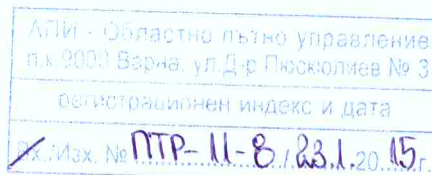 АПИ - Областно пътно управление
п.к. 9000 Варна, ул. Д-р Пюскюлиев № 3
регистрационен индекс и дата
Вх./Изх. № ПТР-11-8 / 23.1. 20 15 г.